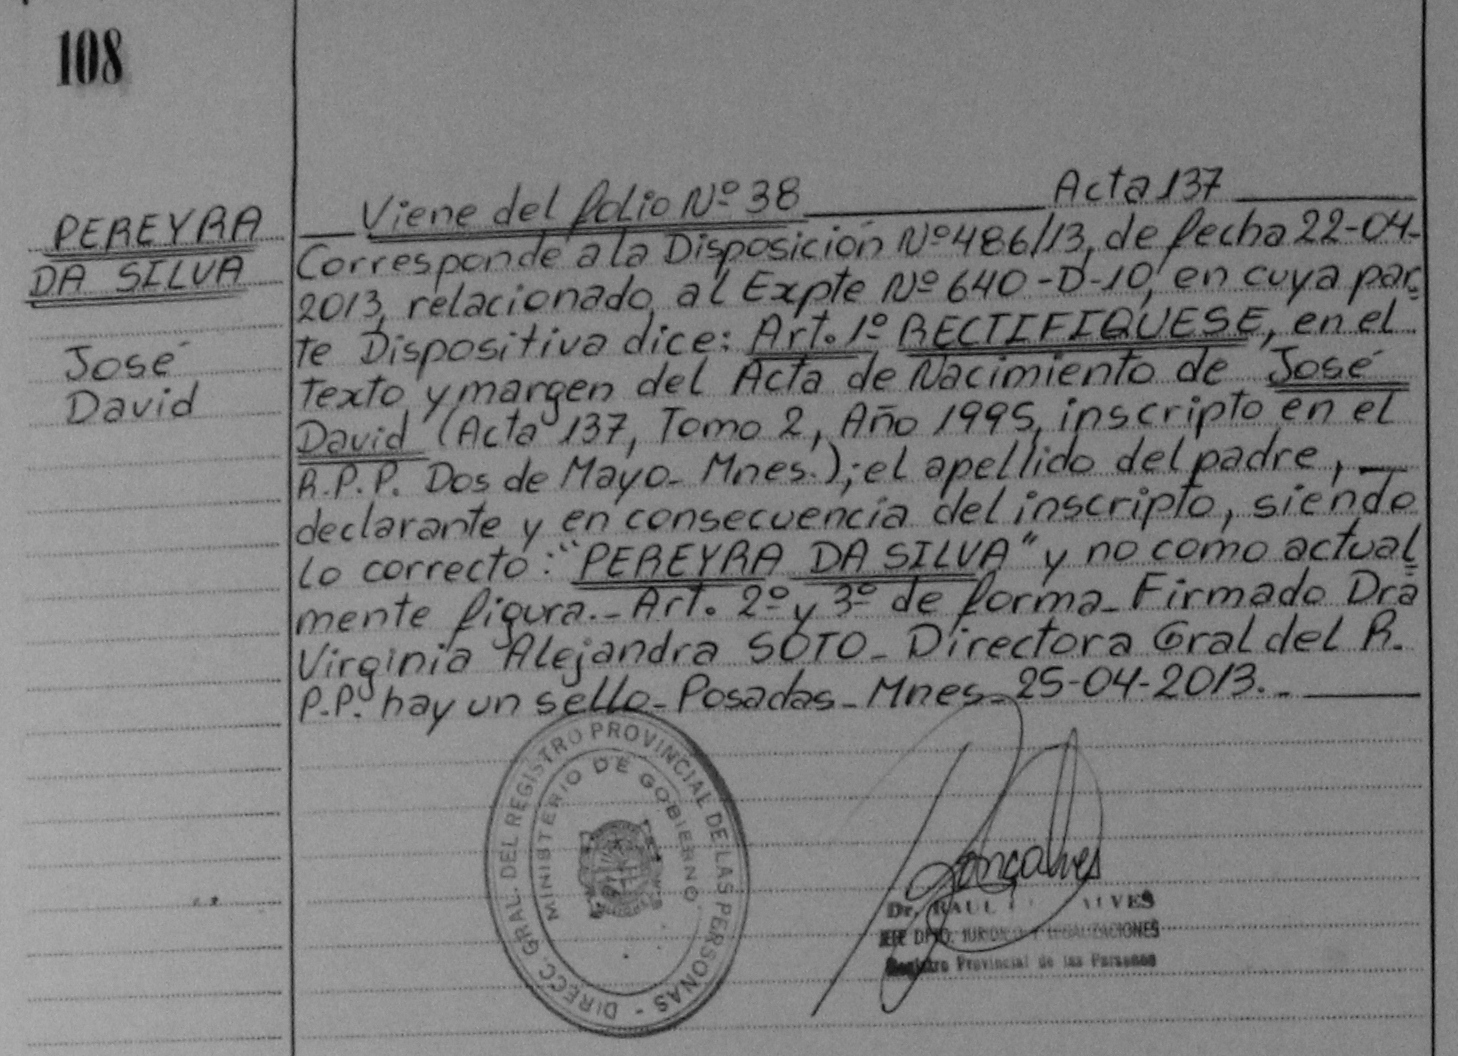 108
PEREYRA
DA SILVA
José
David
Viene del folio Nº 38 Acta 137
Corresponde a la Disposición Nº 486/13, de fecha 22-04-
2013, relacionado al Expte Nº 640-D-10, en cuya par-
te Dispositiva dice: Art. 1º RECTIFIQUESE, en el
texto y margen del Acta de Nacimiento de José
David (Acta 137, Tomo 2, Año 1995, inscripto en el
R.P.P. Dos de Mayo- Mnes.); el apellido del padre,
declarante y en consecuencia del inscripto, siendo
lo correcto: "PEREYRA DA SILVA" y no como actual
mente figura.- Art. 2º y 3º de forma- Firmado Dra
Virginia Alejandra SOTO- Directora Gral del R.
P.P. hay un sello- Posadas- Mnes- 25-04-2013.-
DIRECC. GRAL. DEL REGISTRO PROVINCIAL DE LAS PERSONAS -
MINISTERIO DE GOBIERNO
Goncalves
Dr. RAUL
JEFE DPTO. JURIDICO Y LEGALIZACIONES
Registro Provincial de las Personas